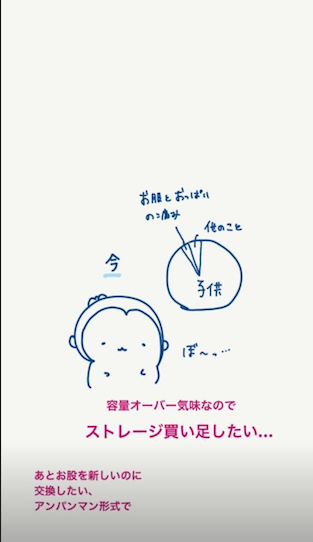 お股とおっぱい
の痛み
他のこと
今
子供
ぼ〜っ…
容量オーバー気味なので
ストレージ買い足したい...
あとお股を新しいのに
交換したい、
アンパンマン形式で